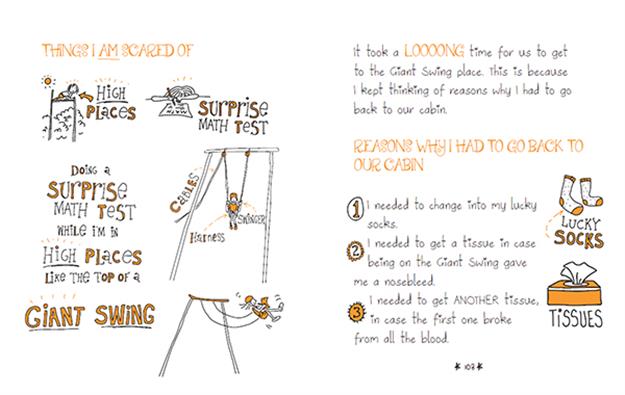 THINGS I AM SCARED OF
HIGH
PLACES
SURPRISE
MATH TEST
DOING A
SURPRISE
MATH TEST
WHILE I'M IN
HIGH PLACES
LIKE THE TOP OF A
GIANT SWING
CABLES
SWINGER
HARNESS
It took a LOOOONG time for us to get
to the Giant Swing place. This is because
I kept thinking of reasons why I had to go
back to our cabin.
REASONS WHY I HAD TO GO BACK TO
OUR CABIN
1 I needed to change into my lucky
socks.
2 I needed to get a tissue in case
being on the Giant Swing gave
me a nosebleed.
3 I needed to get ANOTHER tissue,
in case the first one broke
from all the blood.
LUCKY
SOCKS
TISSUES
* 103 *